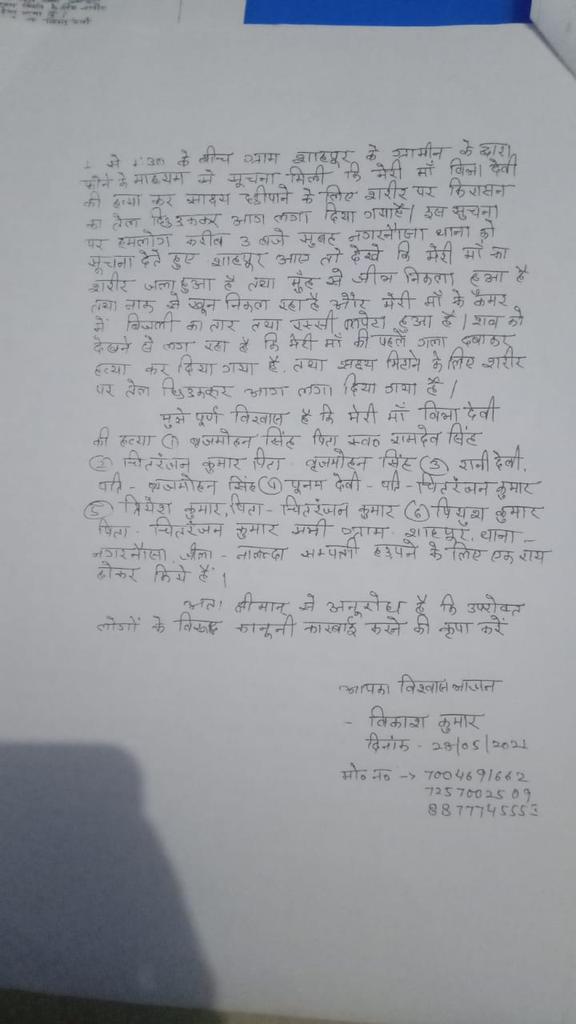 से 1:30 के बीच ग्राम शाहपुर के ग्रामीन के द्वारा
फोन के माध्यम से सूचना मिली कि मेरी माँ विभा देवी
की हत्या कर साक्ष्य छीपाने के लिए शरीर पर किरासन
का तेल छिड़ककर आग लगा दिया गया है। इस सुचना
पर हमलोग करीब 3 बजे सुबह नगरनौसा थाना को
सूचना देते हुए शाहपुर आए तो देखे कि मेरी माँ का
शरीर जला हुआ है तथा मुँह से जीभ निकला हुआ है
तथा नाक से खून निकल रहा है और मेरी माँ के कमर
में बिजली का तार तथा रस्सी लपेटा हुआ है। शव को
देखने से लग रहा है कि मेरी माँ की पहले गला दबाकर
हत्या कर दिया गया है, तथा साक्ष्य मिटाने के लिए शरीर
पर तेल छिड़ककर आग लगा दिया गया है।
मुझे पूर्ण विश्वास है कि मेरी माँ विभा देवी
की हत्या ① बृजमोहन सिंह पिता स्व० रामदेव सिंह
② चितरंजन कुमार पिता - बृजमोहन सिंह ③ रानी देवी,
पति - बृजमोहन सिंह ④ पूनम देवी - पति - चितरंजन कुमार
⑤ प्रियेश कुमार, पिता - चितरंजन कुमार ⑥ पियुश कुमार
पिता - चितरंजन कुमार सभी ग्राम - शाहपुर, थाना -
नगरनौसा, जीला - नालन्दा सम्पत्ती हड़पने के लिए एक राय
होकर किये हैं।
अतः श्रीमान् से अनुरोध है कि उपरोक्त
लोगों के विरूद्ध कानूनी कारवाई करने की कृपा करें
आपका विश्वासभाजन
- विकाश कुमार
दिनांक - 28/05/2021
मो० न० → 7004691662
7257002509
8877745553